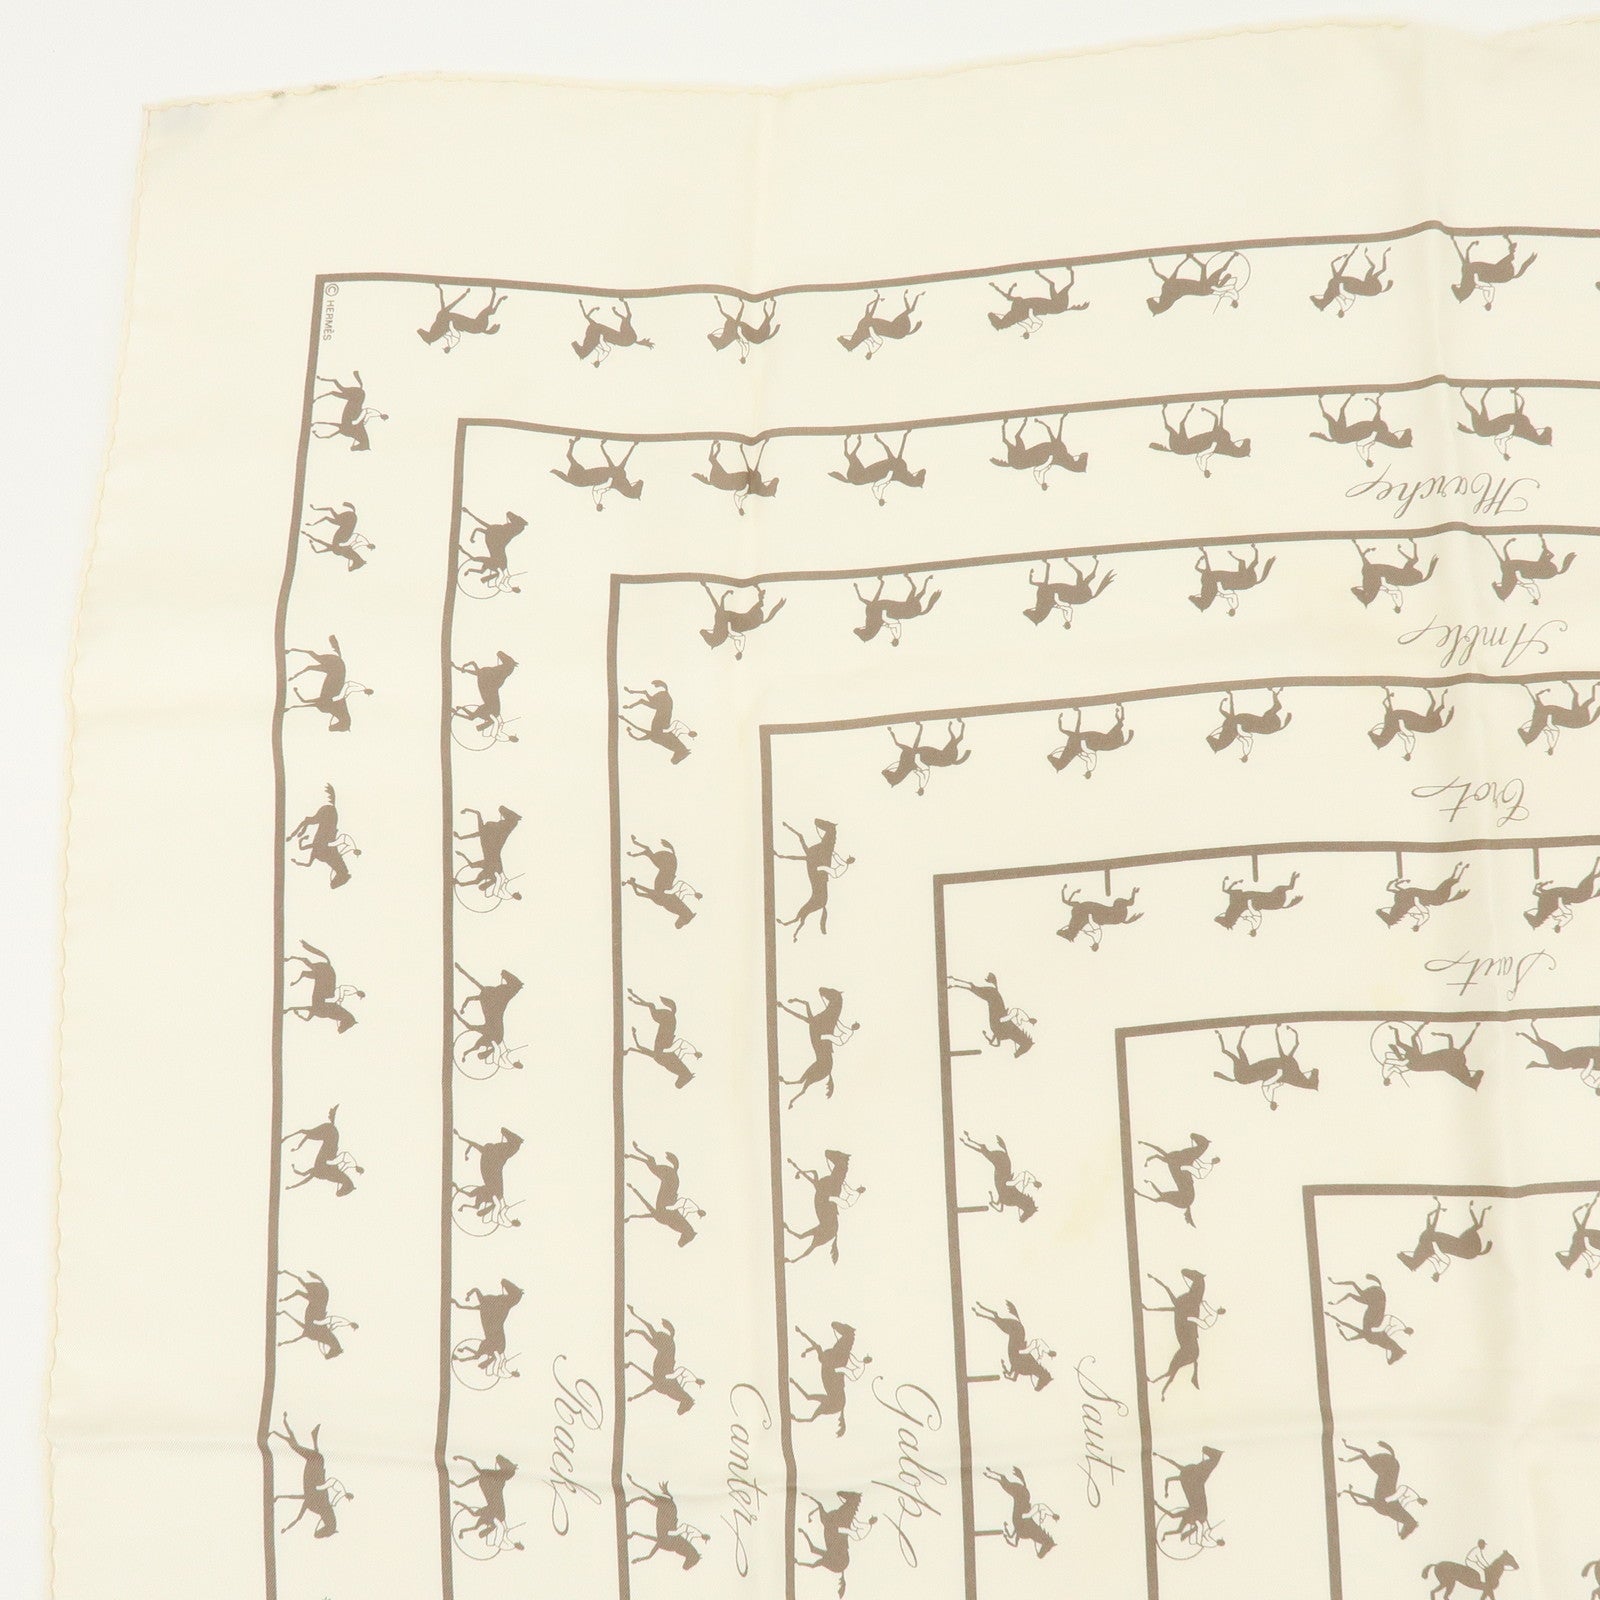 © HERMÈS
Marche
Amble
Trot
Saut
Rack
Canter
Galop
Saut